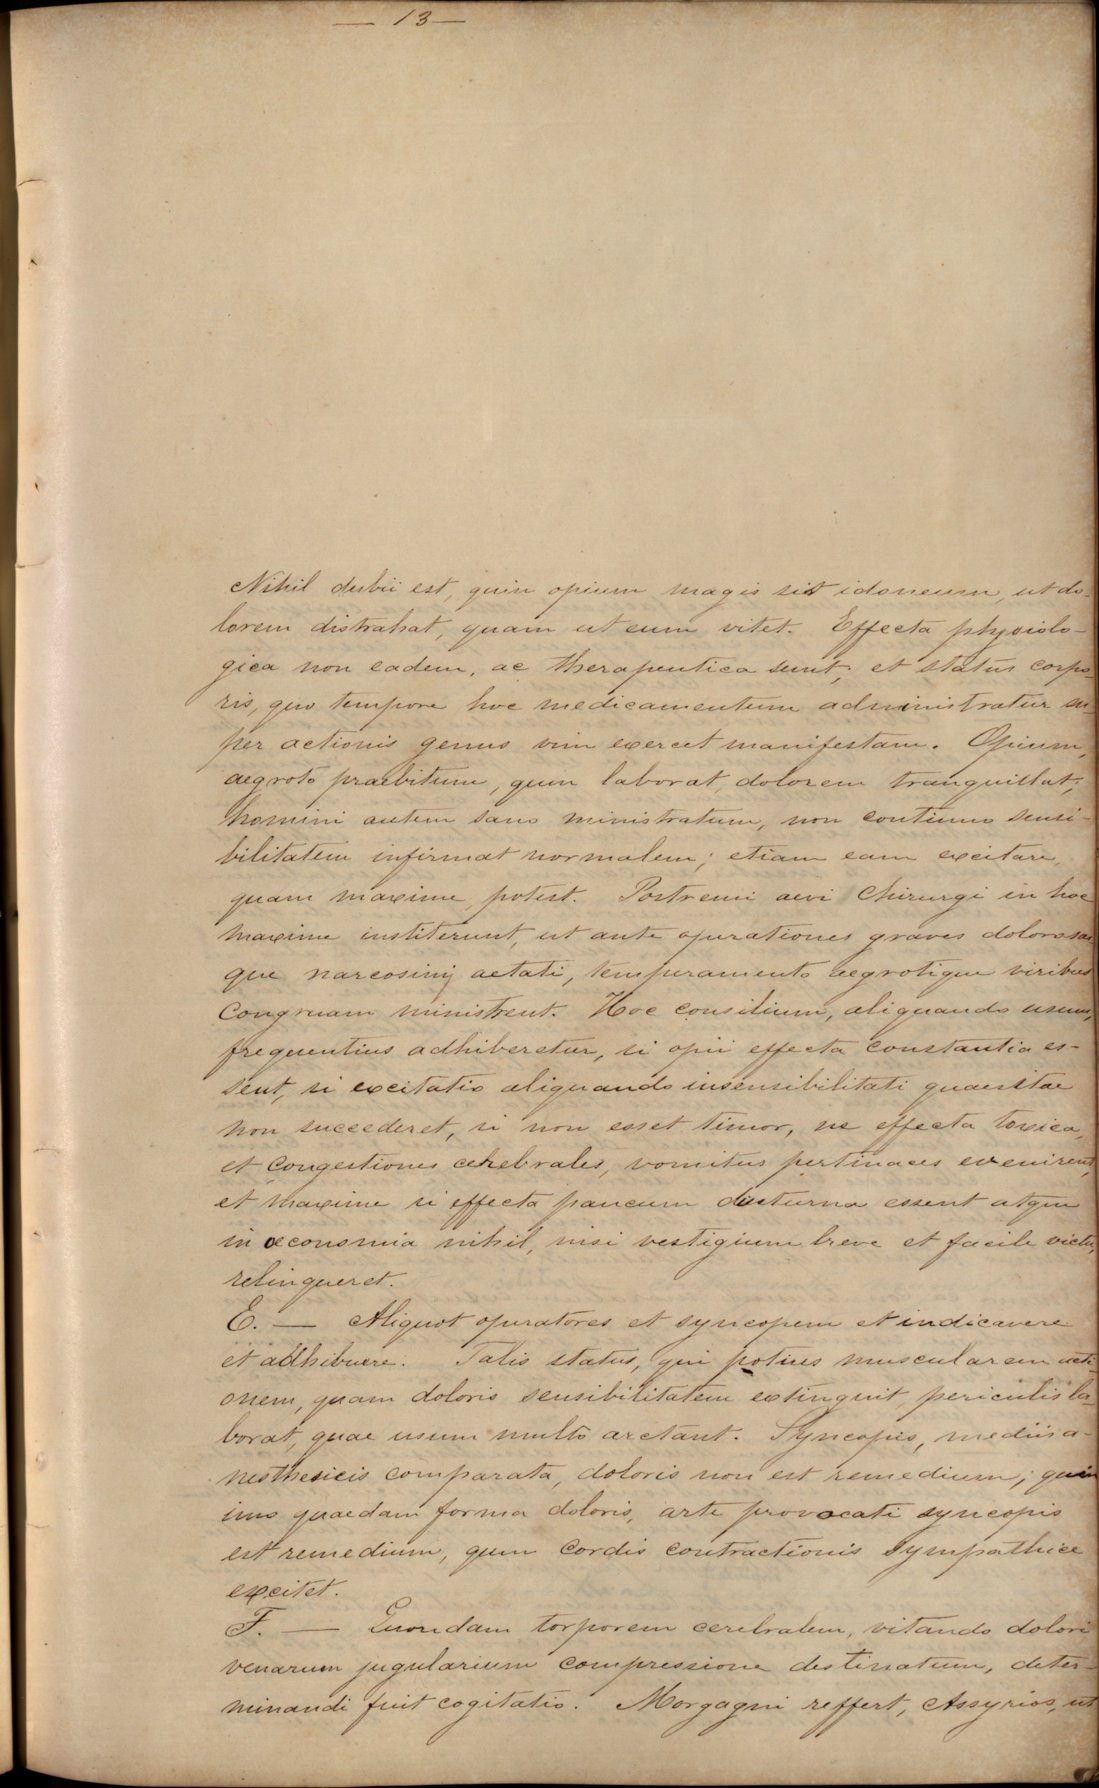 — 13 —
Nihil dubii est, quin opium magis sit idoneum, ut do-
lorem distrahat, quam ut eum vitet. Effecta physiolo-
gica non eadem, ac therapeutica sunt, et status corpo-
ris, quo tempore hoc medicamentum administratur su-
per actionis genus vim exercet manifestam. Opium,
aegroto praebitum, quum laborat, dolorem tranquillat;
homini autem sano ministratum, non continuo sensi-
bilitatem infirmat normalem; etiam eam excitare
quam maxime potest. Postremi aevi Chirurgi in hoc
maxime institerunt, ut ante operationes graves dolorosas
que narcosinij aetati, temperamento aegrotique viribus
congruam ministrent. Hoc consilium, aliquando usum,
frequentius adhiberetur, si opii effecta constantia es-
sent, si excitatio aliquando insensibilitati quaesitae
non succederet, si non esset timor, ne effecta toxica,
et congestiones cerebrales, vomitus pertinaces evenirent,
et maxime si effecta paucum diuturna essent atque
in oeconomia nihil, nisi vestigium breve et facile victu,
relinqueret.
E. — Aliquot operatores et syncopem et indicavere
et adhibuere. Talis status, qui potius muscularem acti-
onem, quam doloris sensibilitatem extinguit, periculis la-
borat, quae usum multo arctant. Syncopis, mediis a-
nesthesicis comparata, doloris non est remedium; quin
imo quaedam forma doloris, arte provocati syncopis
est remedium, quum cordis contractionis sympathice
excitet.
F. — Quondam torporem cerebralem, vitando dolori
venarum jugularium compressione destinatum, deter-
minandi fuit cogitatio. Morgagni reffert, Assyrios, ut